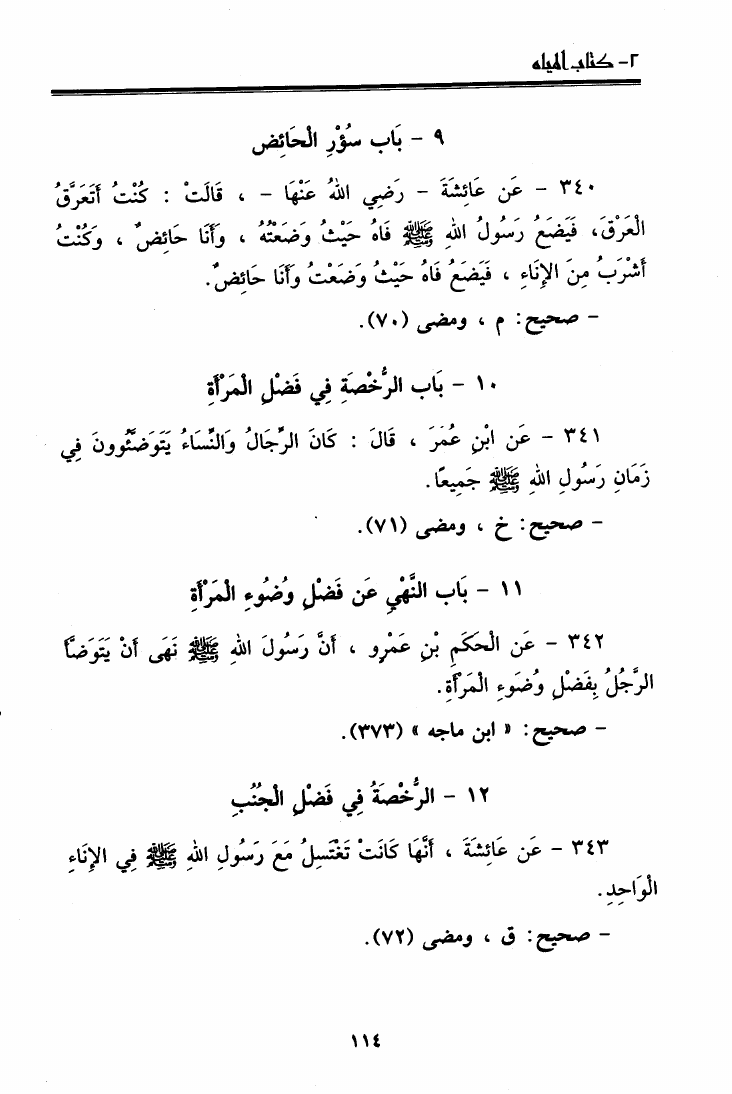 ٢- كتاب المياه
٩ - بَاب سُؤْرِ الْحَائِض
٣٤٠ - عَن عَائِشَةَ - رَضِي اللهُ عَنْهَا - ، قَالَتْ : كُنْتُ أَتَعَرَّقُ
الْعَرْقَ، فَيَضَعُ رَسُولُ اللهِ ﷺ فَاهُ حَيْثُ وَضَعْتُهُ ، وَأَنَا حَائِضٌ ، وَكُنْتُ
أَشْرَبُ مِنَ الإِنَاءِ ، فَيَضَعُ فَاهُ حَيْثُ وَضَعْتُ وَأَنَا حَائِضٌ.
- صحيح: م ، ومضى (٧٠).
١٠ - بَاب الرُّخْصَةِ فِي فَضْلِ الْمَرْأَةِ
٣٤١ - عَن ابْنِ عُمَرَ ، قَالَ : كَانَ الرِّجَالُ وَالنِّسَاءُ يَتَوَضَّئُونَ فِي
زَمَانِ رَسُولِ اللهِ ﷺ جَمِيعًا.
- صحيح: خ ، ومضى (٧١).
١١ - بَاب النَّهْيِ عَن فَضْلِ وُضُوءِ الْمَرْأَةِ
٣٤٢ - عَن الْحَكَمِ بْنِ عَمْرِو ، أَنَّ رَسُولَ اللهِ ﷺ نَهَى أَنْ يَتَوَضَّأَ
الرَّجُلُ بِفَضْلِ وُضُوءِ الْمَرْأَةِ.
- صحيح: « ابن ماجه » (٣٧٣).
١٢ - الرُّخْصَةُ فِي فَضْلِ الْجُنُبِ
٣٤٣ - عَن عَائِشَةَ ، أَنَّهَا كَانَتْ تَغْتَسِلُ مَعَ رَسُولِ اللهِ ﷺ فِي الإِنَاءِ
الْوَاحِدِ.
- صحيح: ق ، ومضى (٧٢).
١١٤